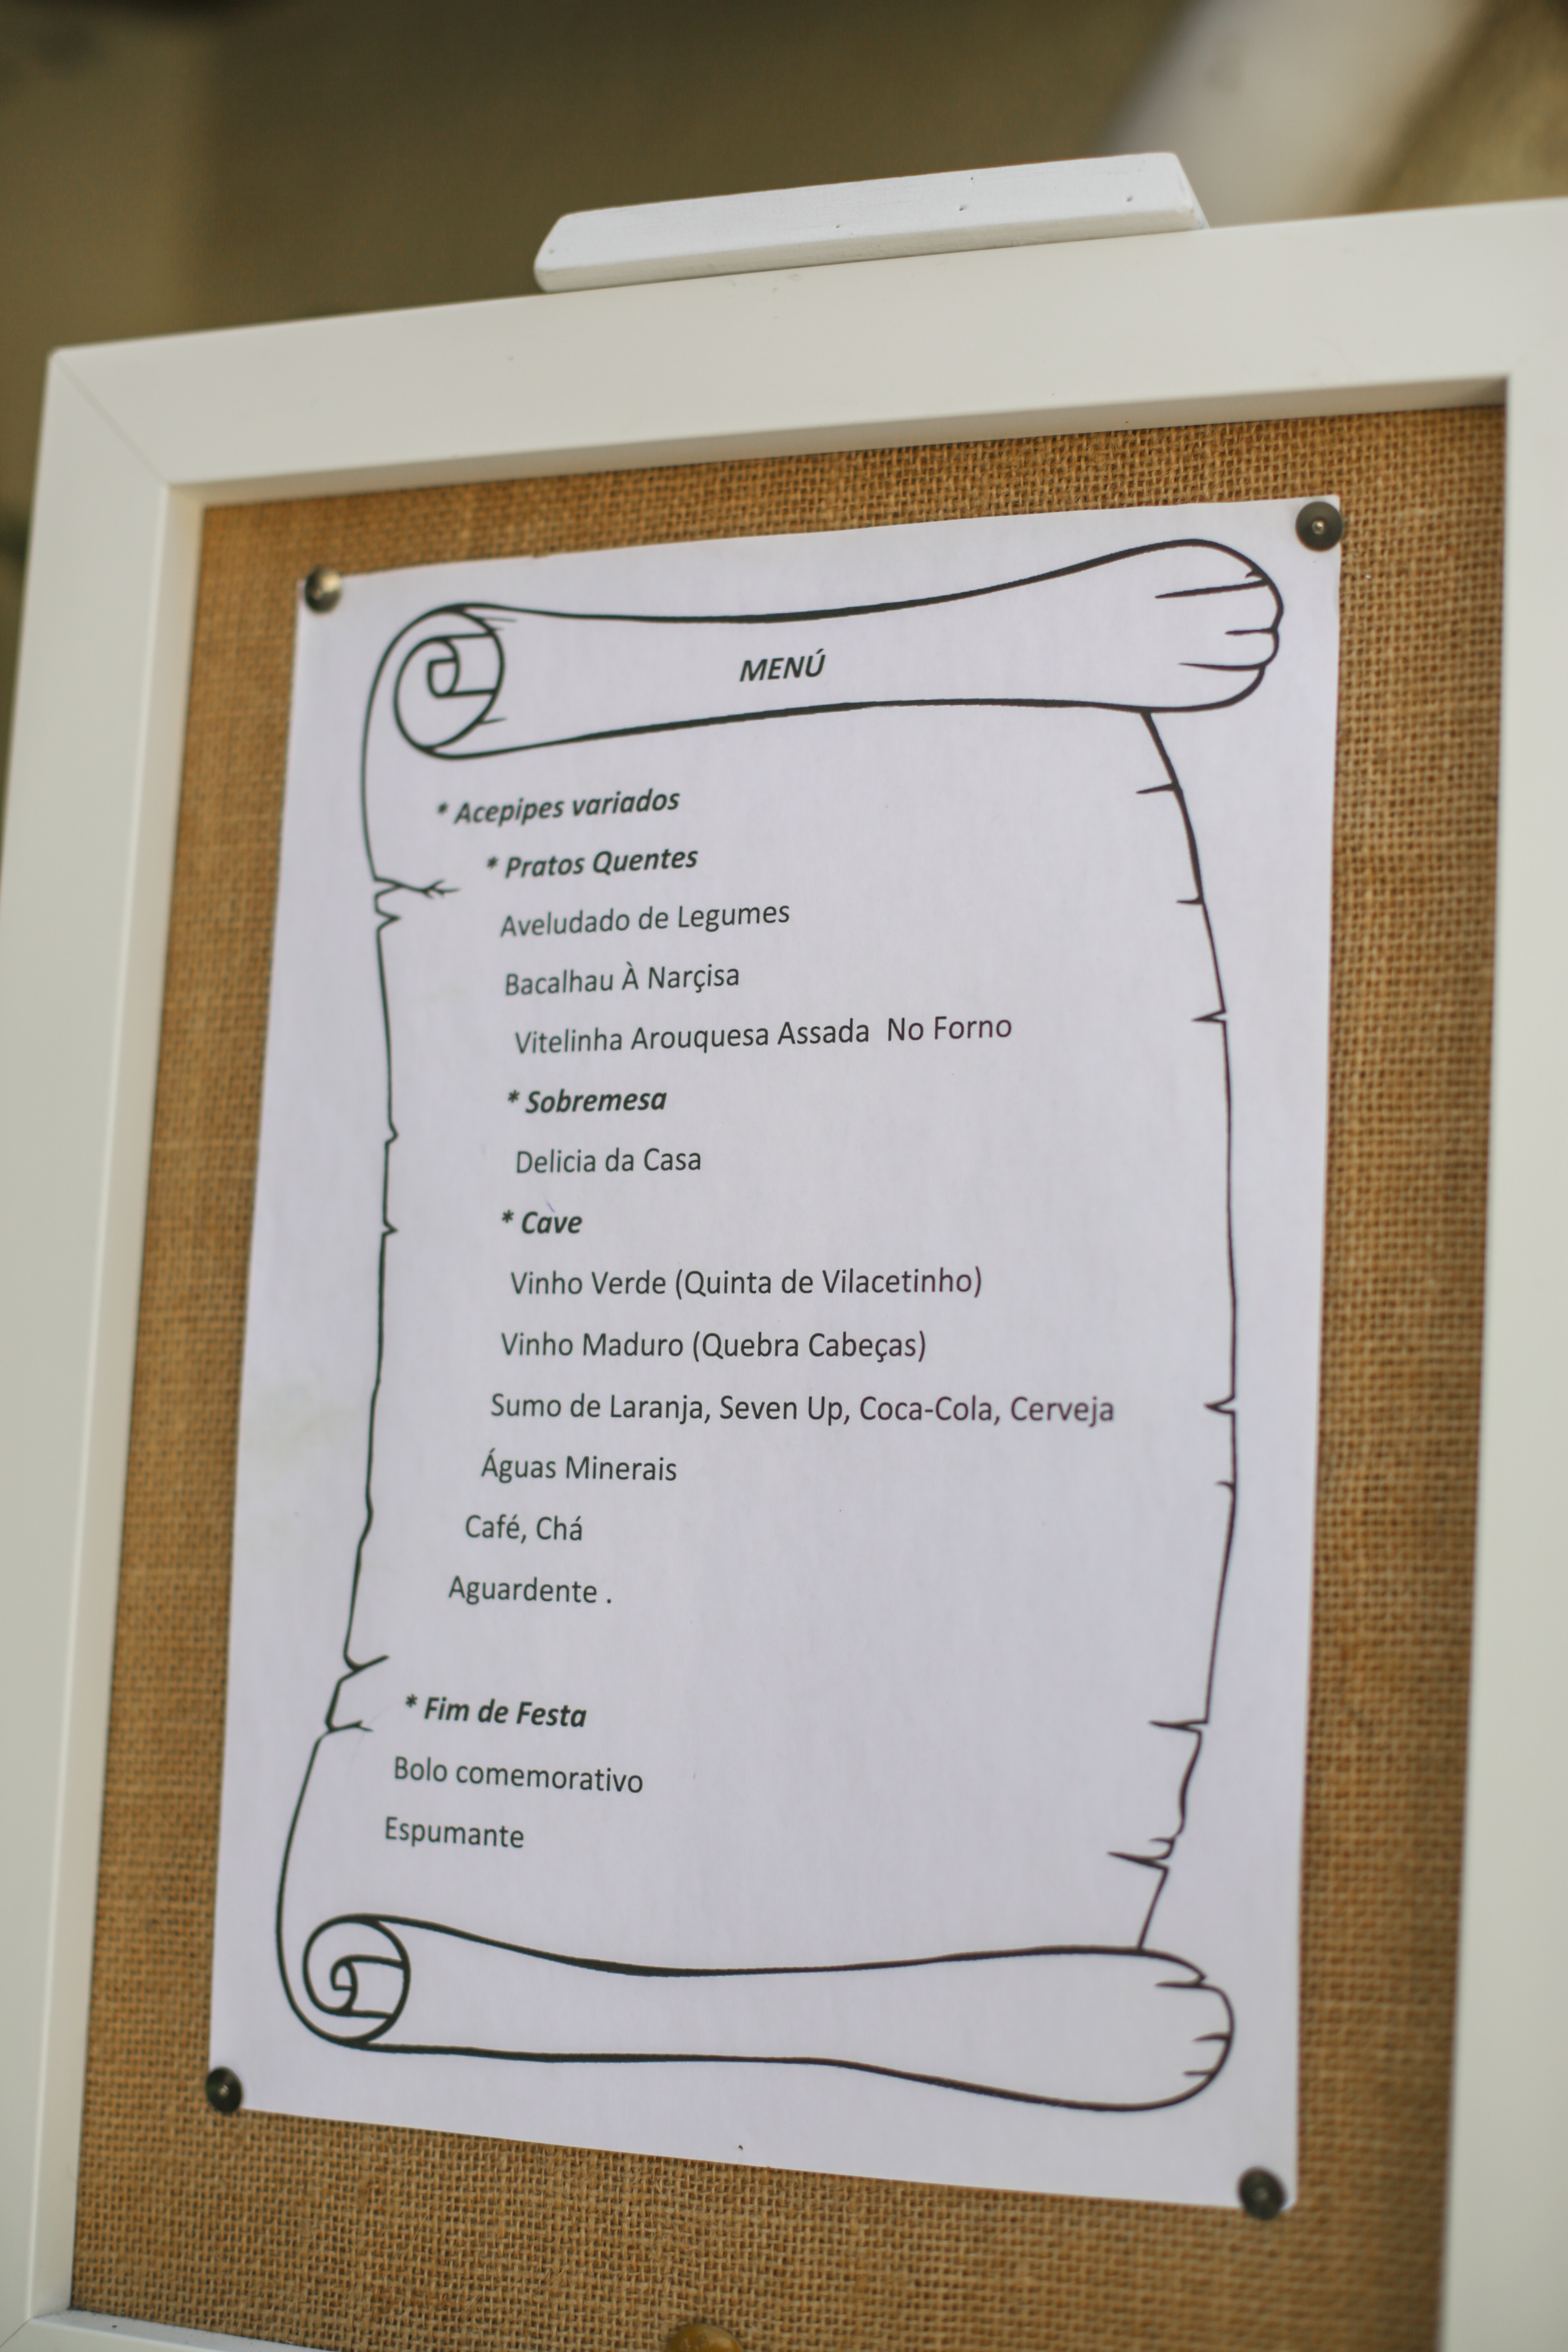 MENÚ
* Acepipes variados
* Pratos Quentes
Aveludado de Legumes
Bacalhau À Narçisa
Vitelinha Arouquesa Assada  No Forno
* Sobremesa
Delicia da Casa
* Cave
Vinho Verde (Quinta de Vilacetinho)
Vinho Maduro (Quebra Cabeças)
Sumo de Laranja, Seven Up, Coca-Cola, Cerveja
Águas Minerais
Café, Chá
Aguardente .
* Fim de Festa
Bolo comemorativo
Espumante